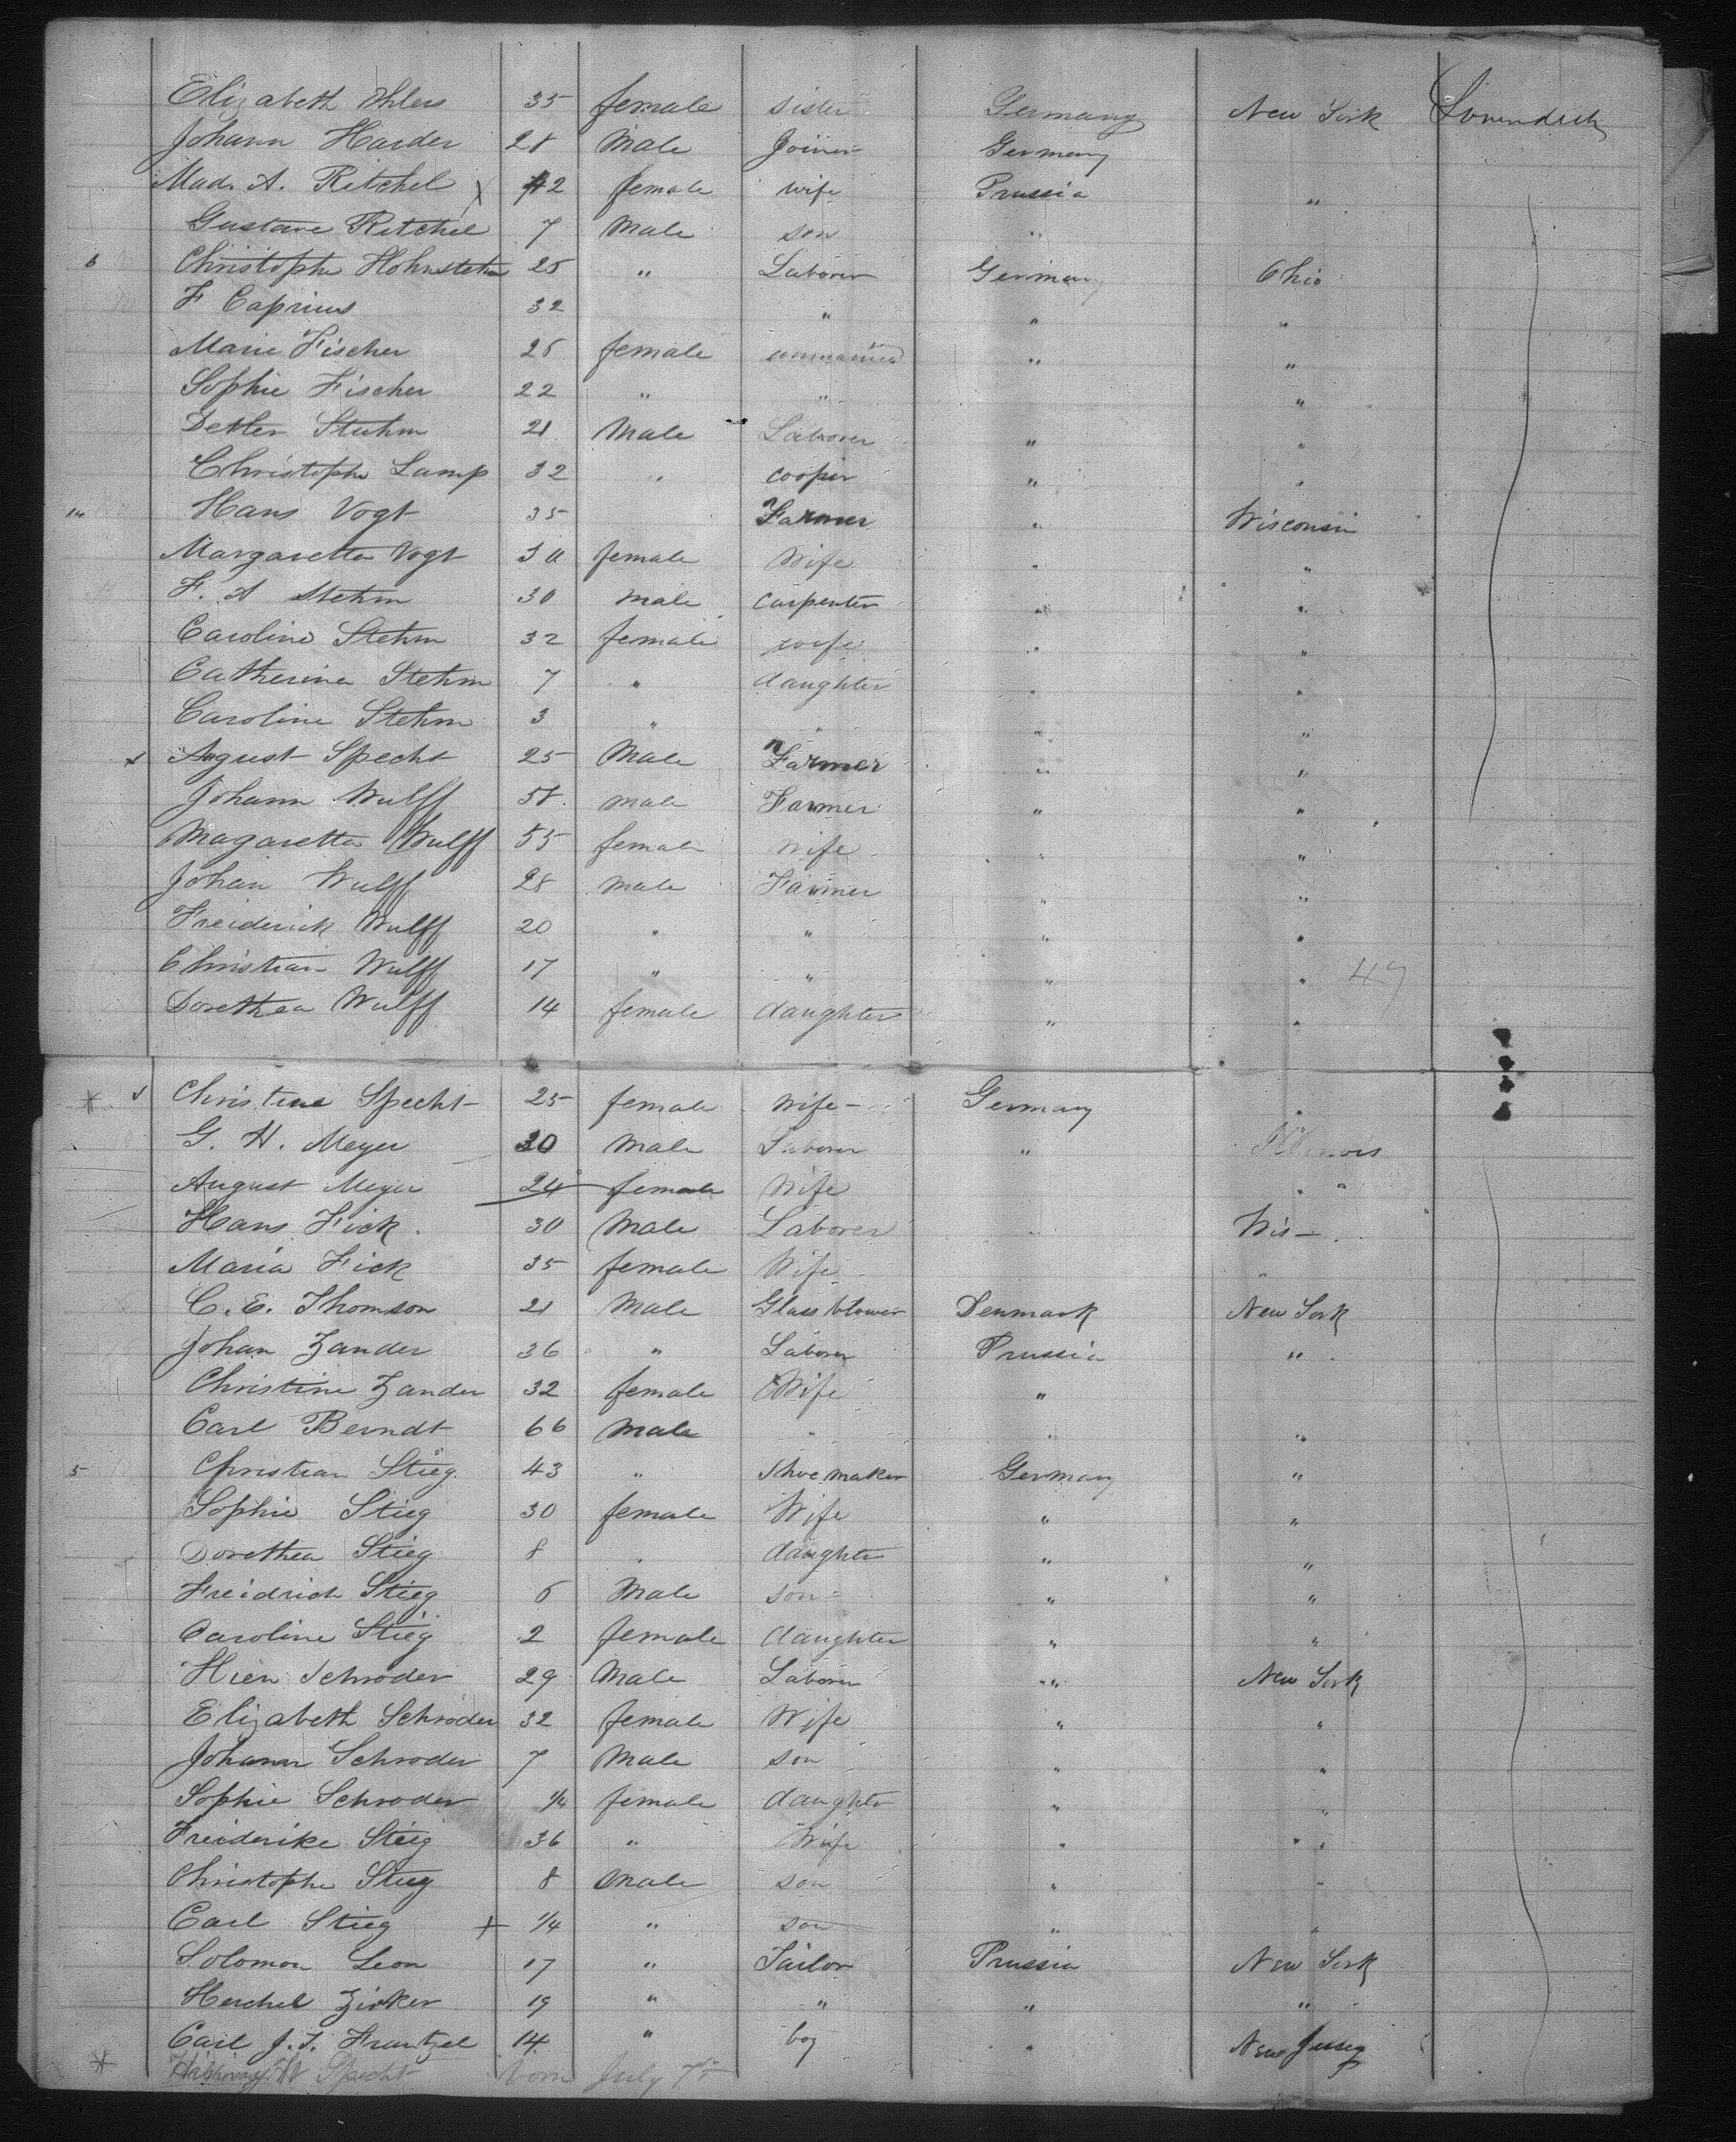 Elizabeth Ehlers 35 female sister Germany New York
Johann Harder 28 Male Joiner Germany
Mad. A. Ritchel x 42 female wife Prussia "
Gustave Ritchel 7 Male son "
6 Christoph Hohnstehn 25 " Laborer Germany Ohio
F Caprius 32 " " "
Marie Fischer 26 female unmarried " "
Sophie Fischer 22 " " "
Detler Stuhm 21 Male Laborer " "
Christoph Lamp 32 " cooper " "
14 Hans Vogt 35 Farmer " Wisconsin
Margaretta Vogt 30 female Wife " "
F. A Stehm 30 male carpenter " "
Caroline Stehm 32 female wife " "
Catherina Stehm 7 " daughter " "
Caroline Stehm 3 " " " "
x August Specht 25 Male Farmer " "
Johann Wulff 58 male Farmer " "
Magaretta Wulff 55 female wife " "
Johan Wulff 28 male Farmer " "
Freiderick Wulff 20 " " " "
Christian Wulff 17 " " " " 47
Dorethea Wulff 14 female daughter " "
* Christine Specht 25 female wife Germany "
G. H. Meyer 30 Male Laborer " Illinois
August Meyer 24 female Wife "
Hans Fick 30 Male Laborer Wis
Maria Fick 35 female Wife "
C. E. Thomson 21 Male Glass blower Denmark New York
Johan Zander 36 " Laborer Prussia "
Christine Zander 32 female Wife "
Carl Berndt 66 male " " "
5 Christian Stieg 43 " Shoe maker Germany "
Sophie Stieg 30 female Wife " "
Dorethea Stieg 8 " daughter " "
Freidrich Stieg 6 Male son " "
Caroline Stieg 2 female daughter " "
Hien Schroder 29 Male Laborer " New York
Elizabeth Schroder 32 female Wife " "
Johann Schroder 7 Male son " "
Sophie Schroder 1/4 female daughter " "
Freiderike Stieg 36 " Wife " "
Christophe Stieg 8 male son " "
Carl Stieg + 1/4 " son " "
Solomon Leon 17 " Tailor Prussia New York
Herchel Zirker 19 " " " "
Carl J. F. Frantzel 14 " boy " New Jersey
* W Specht born July 7th